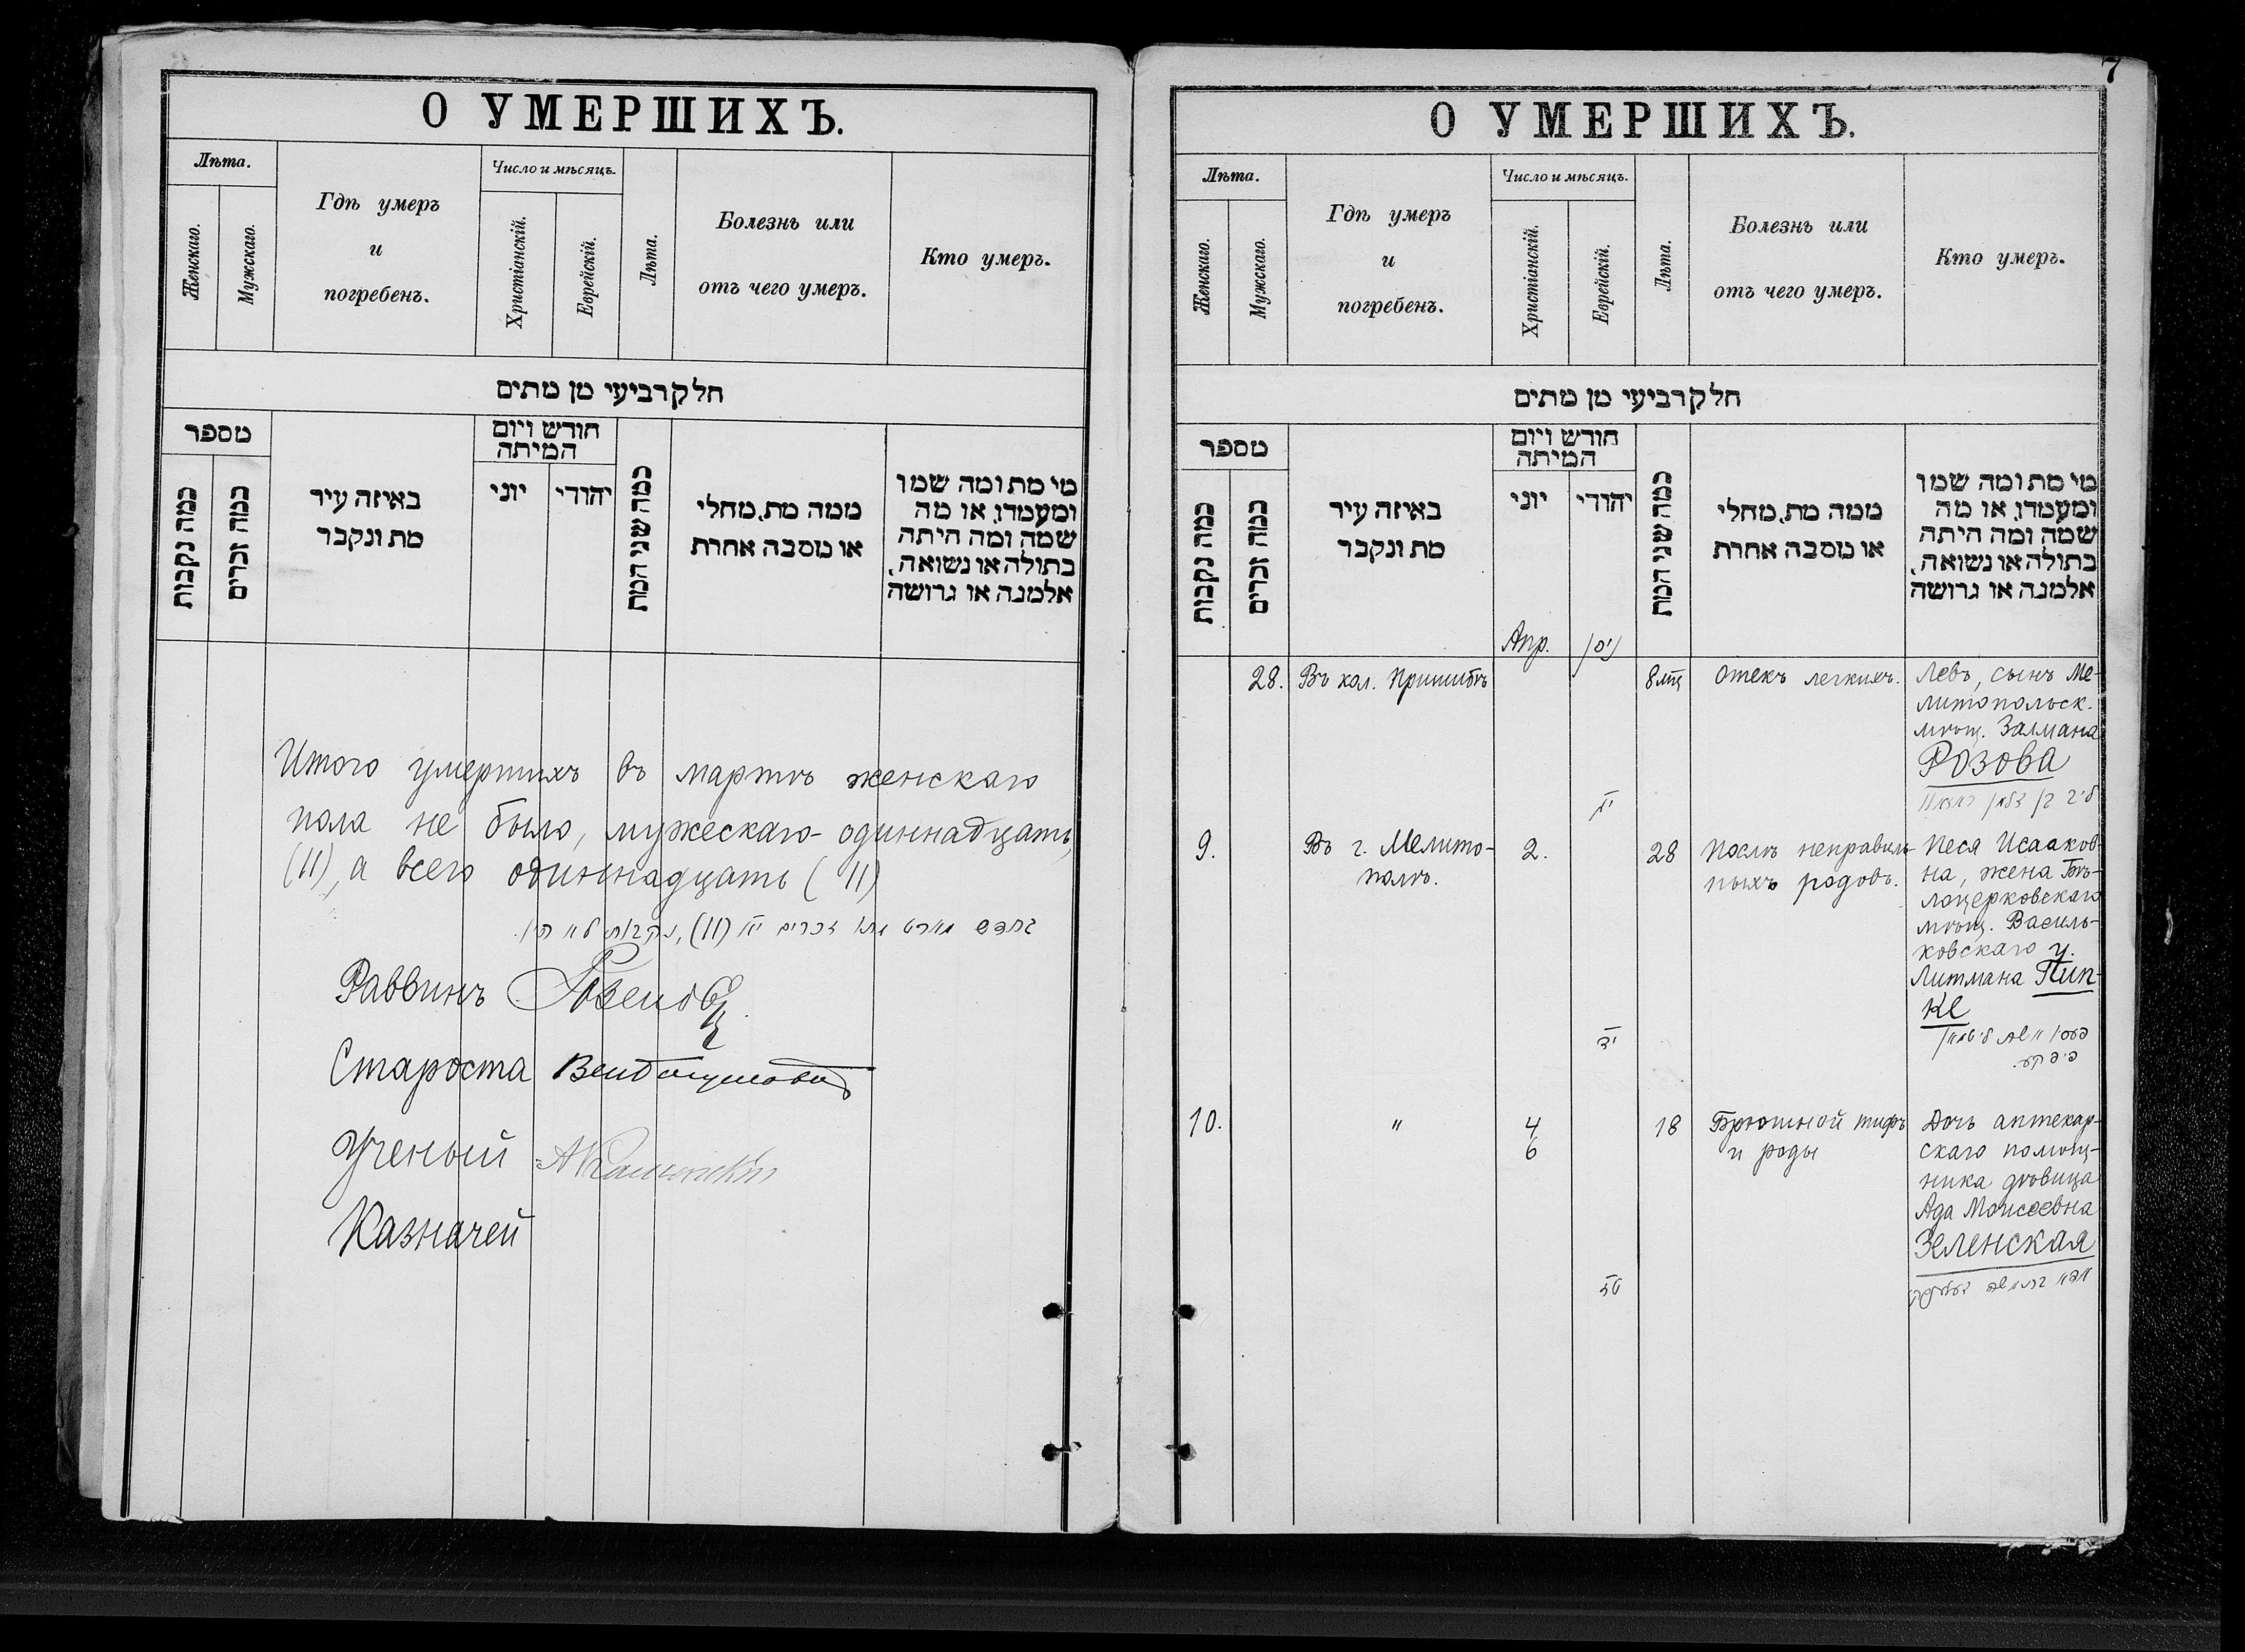 О УМЕРШИХЪ.
Лѣта.
Женскаго.
Мужскаго.
Гдѣ умеръ
и
погребенъ.
Число и мѣсяцъ.
Христіанскій.
Еврейскій.
Лѣта.
Болезнь или
отъ чего умеръ.
Кто умеръ.
חלק רביעי מן מתים
מספר
כמה נקבות
כמה זכרים
באיזה עיר
מת ונקבר
חודש ויום
המיתה
יוני
יהודי
כמה שני המת
ממה מת, מחלי
או מסבה אחרת
מי מת ומה שמו
ומעמדו, או מה
שמה ומה היתה
בתולה או נשואה,
אלמנה או גרושה
Итого умершихъ въ мартѣ женскаго
пола не было, мужескаго - одиннадцать
(11), а всего одиннадцать (11)
בחדש מארט מתו זכרים יא (11), נקבות לא היו.
Раввинъ
Староста
Ученый
Казначей
7
О УМЕРШИХЪ.
Лѣта.
Женскаго.
Мужскаго.
Гдѣ умеръ
и
погребенъ.
Число и мѣсяцъ.
Христіанскій.
Еврейскій.
Лѣта.
Болезнь или
отъ чего умеръ.
Кто умеръ.
חלק רביעי מן מתים
מספר
כמה נקבות
כמה זכרים
באיזה עיר
מת ונקבר
חודש ויום
המיתה
יוני
יהודי
כמה שני המת
ממה מת, מחלי
או מסבה אחרת
מי מת ומה שמו
ומעמדו, או מה
שמה ומה היתה
בתולה או נשואה,
אלמנה או גרושה
Апр.
ניסן
28.
Въ кол. Пришибъ
8 мц
Отекъ легкихъ.
Левъ, сынъ Ме-
литопольск.
мѣщ. Залмана
Розова
ליב בן זלמן ראזאוו
9.
Въ г. Мелито-
полѣ.
2.
28
Послѣ неправиль-
ныхъ родовъ.
Песя Исааков-
на, жена Бѣ-
лоцерковскаго
мѣщ. Василь-
ковскаго у.
Литмана Пип-
ке
יד
פיפקע.
10.
"
4
6
18
Брюшной тифъ
и роды
Дочь аптекар-
скаго помощ-
ника дѣвица
Ада Моисеевна
Зеленская